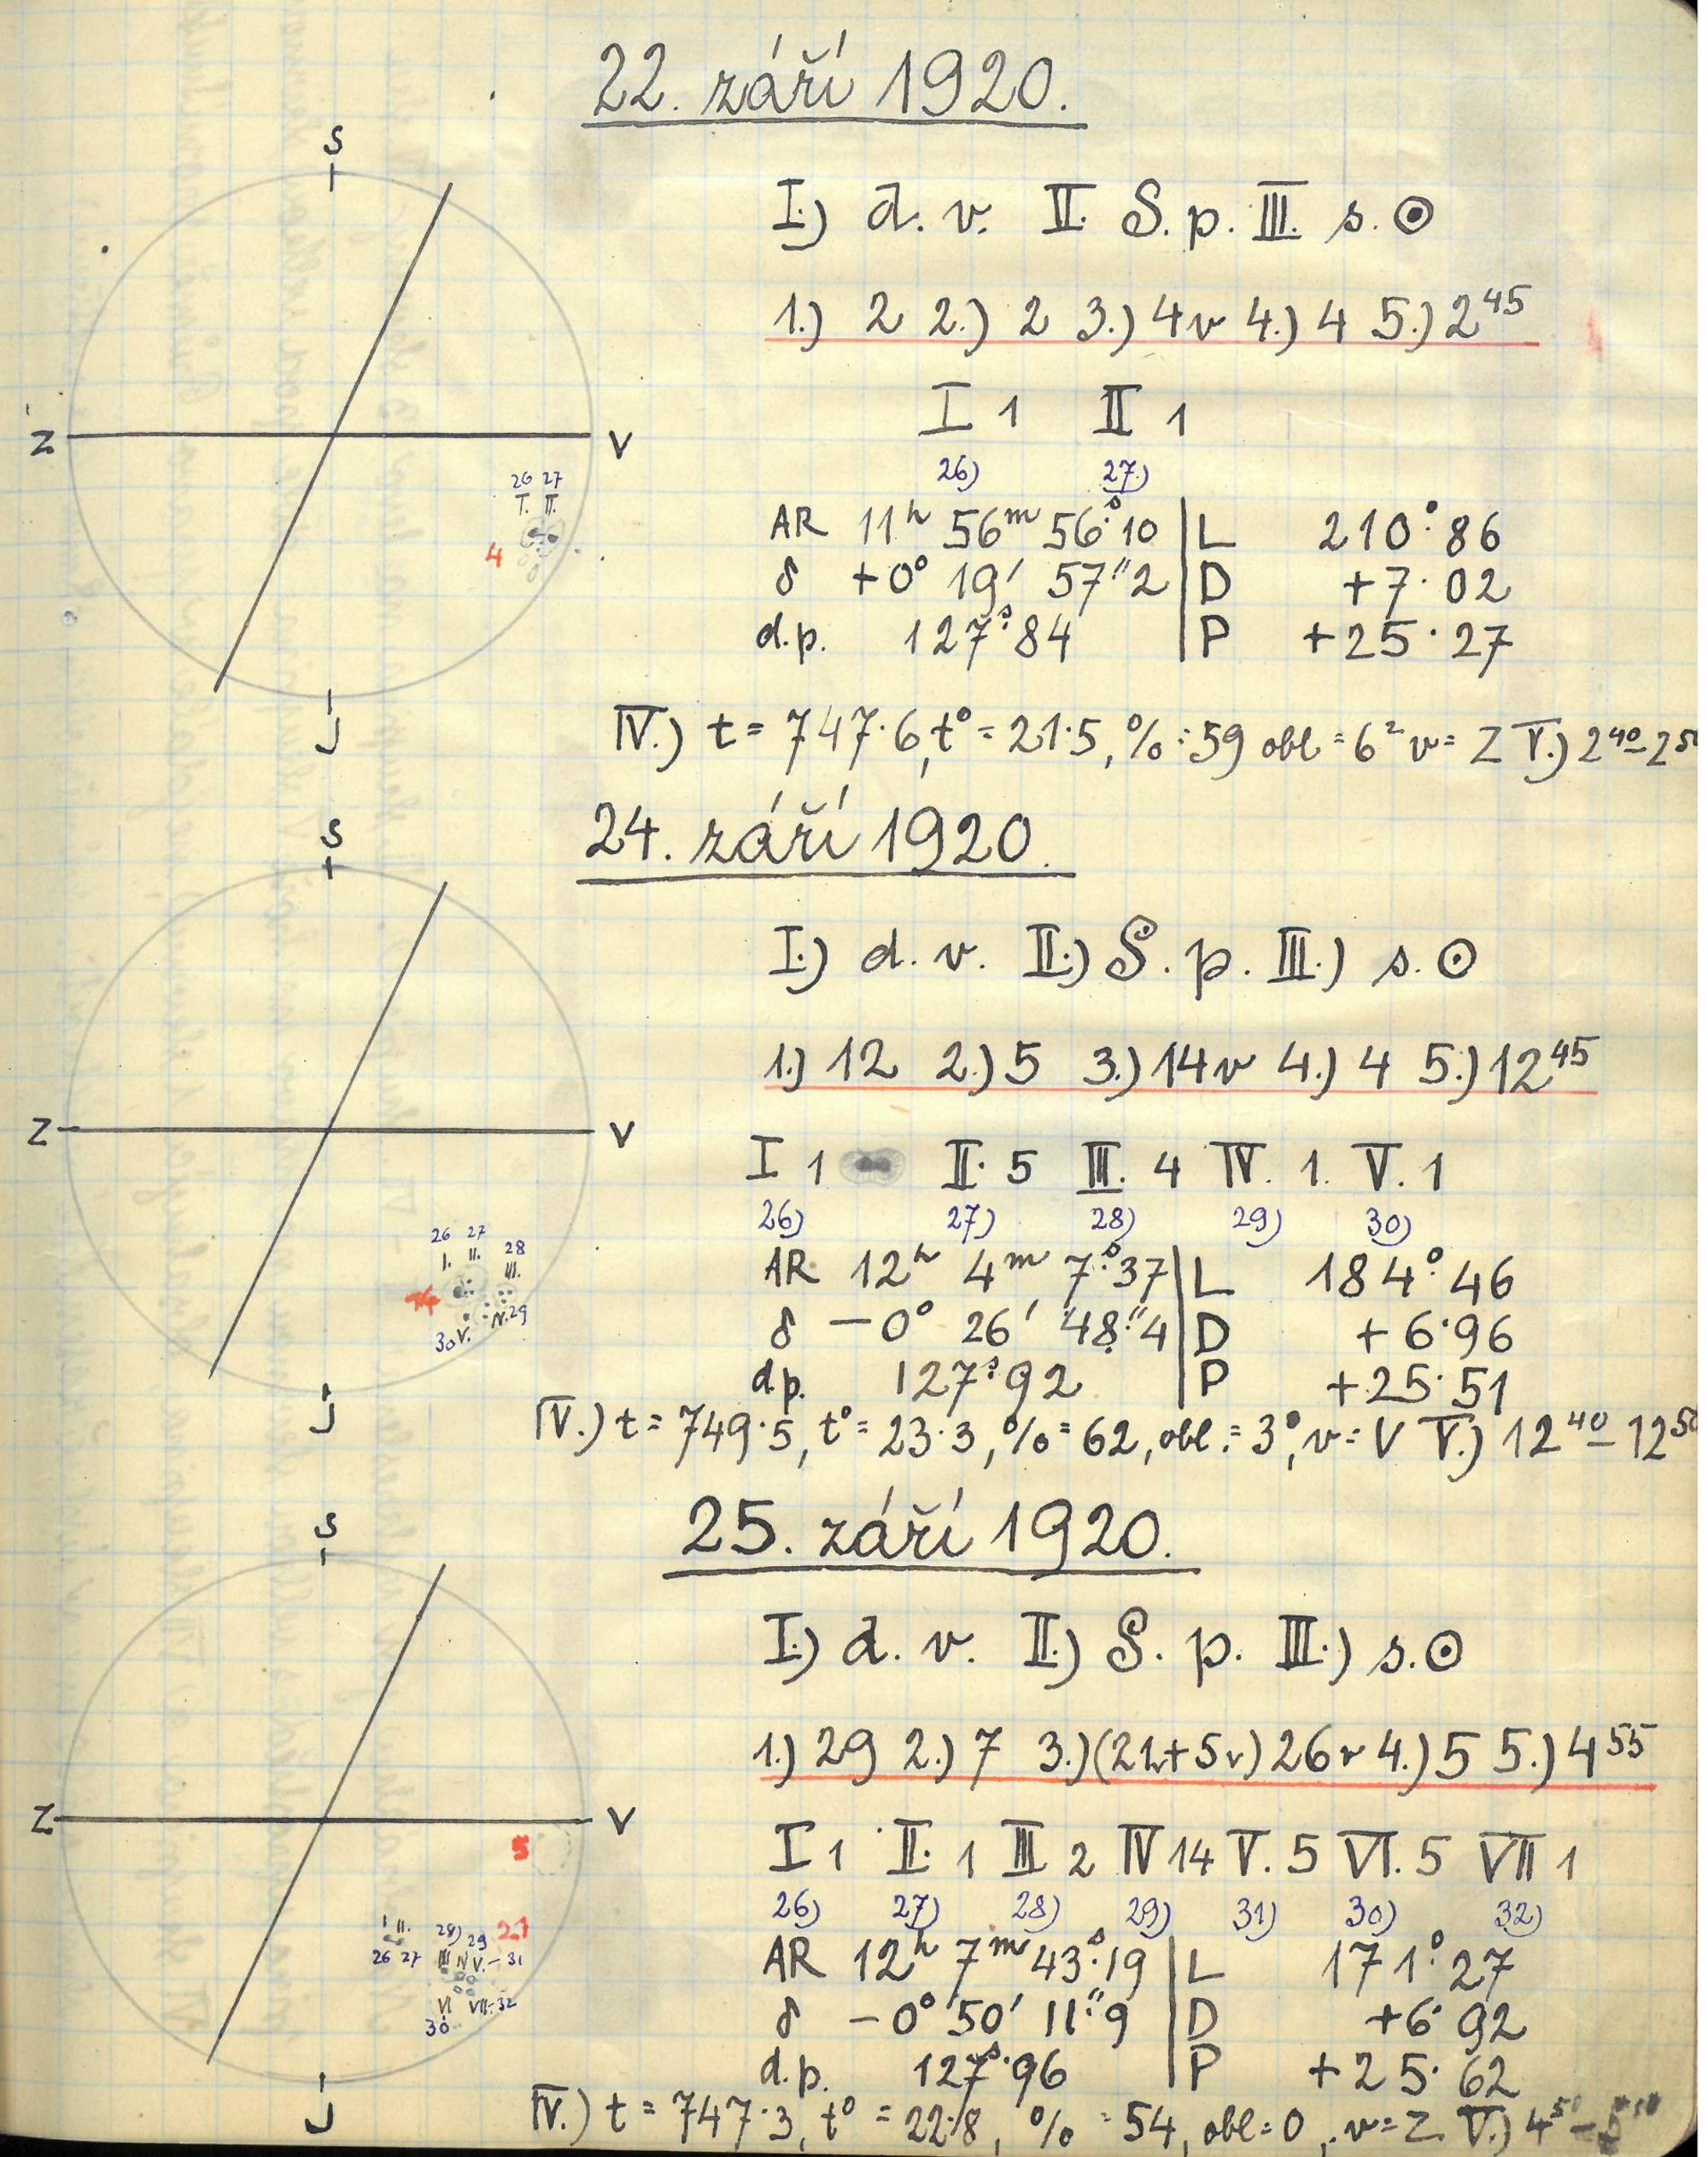 22. září 1920.
S
I.) d. v. II. S. p. III. s. ⊙
1.) 2 2.) 2 3.) 4v 4.) 4 5.) 2⁴⁵
I 1 II 1
Z V
26) 27)
26 27
I. II.
4
AR 11ʰ 56ᵐ 56ˢ·10 L 210°·86
δ +0° 19′ 57″·2 D +7·02
d.p. 127ˢ·84 P +25·27
J
IV.) t = 747·6, t° = 21·5, % = 59 obl = 6² v = Z V.) 2⁴⁰–2⁵⁰
24. září 1920.
S
I.) d. v. II.) S. p. III.) s. ⊙
1.) 12 2.) 5 3.) 14v 4.) 4 5.) 12⁴⁵
Z V
I 1 II. 5 III. 4 IV. 1. V. 1
26) 27) 28) 29) 30)
26 27 28
I. II. III.
14
IV. 29
30 V.
AR 12ʰ 4ᵐ 7ˢ·37 L 184°·46
δ –0° 26′ 48″·4 D +6·96
d.p. 127ˢ·92 P +25·51
J
IV.) t = 749·5, t° = 23·3, % = 62, obl. = 3⁰, v = V V.) 12⁴⁰–12⁵⁰
25. září 1920.
S
I.) d. v. II.) S. p. III.) s. ⊙
1.) 29 2.) 7 3.) (21+5v) 26v 4.) 5 5.) 4⁵⁵
Z V
5
I 1 II. 1 III 2 IV 14 V. 5 VI. 5 VII 1
26) 27) 28) 29) 31) 30) 32)
I II. 28) 29 21
26 27 III IV V.– 31
VI VII.– 32
30
AR 12ʰ 7ᵐ 43ˢ·19 L 171°·27
δ –0° 50′ 11″·9 D +6·92
d.p. 127ˢ·96 P +25·62
J
IV.) t = 747·3, t° = 22·8, % = 54, obl = 0, v = Z. V.) 4⁵⁰–